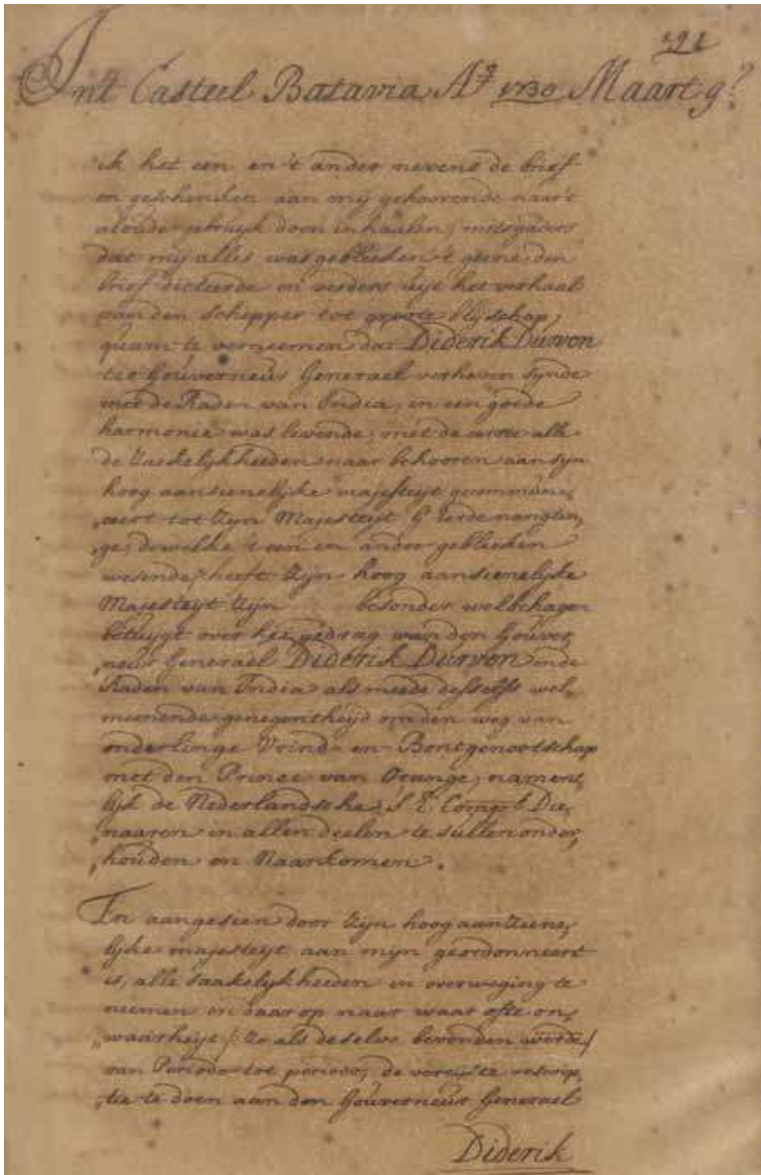 291
Int Casteel Batavia Aº 1730 Maart 9º
ik het een en 't ander nevens de brief
en geschenken aan mij gehoorende naar't
aloude gebruyk doen inhaalen, mitsgaders
dat mij alles was gebleeken 't geene den
brief dicteerde en verders uijt het verhaal
van den schipper tot groote blijschap,
quam te verneemen dat Diderik Durven
tot Gouverneur Generael verheven synde
met de Raden van India, in een goede
harmonie was levende, met de alle
de Zaekelijkheeden naar behooren aan syn
hoog aansienelijke majesteyt gecommuni,
„ceert tot Zijn Majesteyt
„ge, dewelke 't een en ander gebleeken
wesende, heeft Zijn hoog aansienelijke
Majesteyt Zijn besonder welbehagen
betuygt over het gedrag van den Gouver
„neur Generael Diderik Durven en de
Raden van India als meede desselfs wel,
meenende genegentheyd om den weg van
onderlinge Vrind- en Bontgenootschap
met den Prince van Orange, nament,
lijk de Nederlandsche Comps. Die,
„naaren in allen deelen te sullen onder,
„houden en Naarkomen.
En aangesien door Zijn hoog aanziene,
lijke majesteyt aan mijn geordonneert
is, alle saakelijkheeden in overweging te
neemen en daar op naar waar ofte on,
„waarheyt / zo als deselve bevonden worde /
van Periode tot periode, de vereyste rescrip,
„tie te doen aan den Gouverneur Generael
Diderik